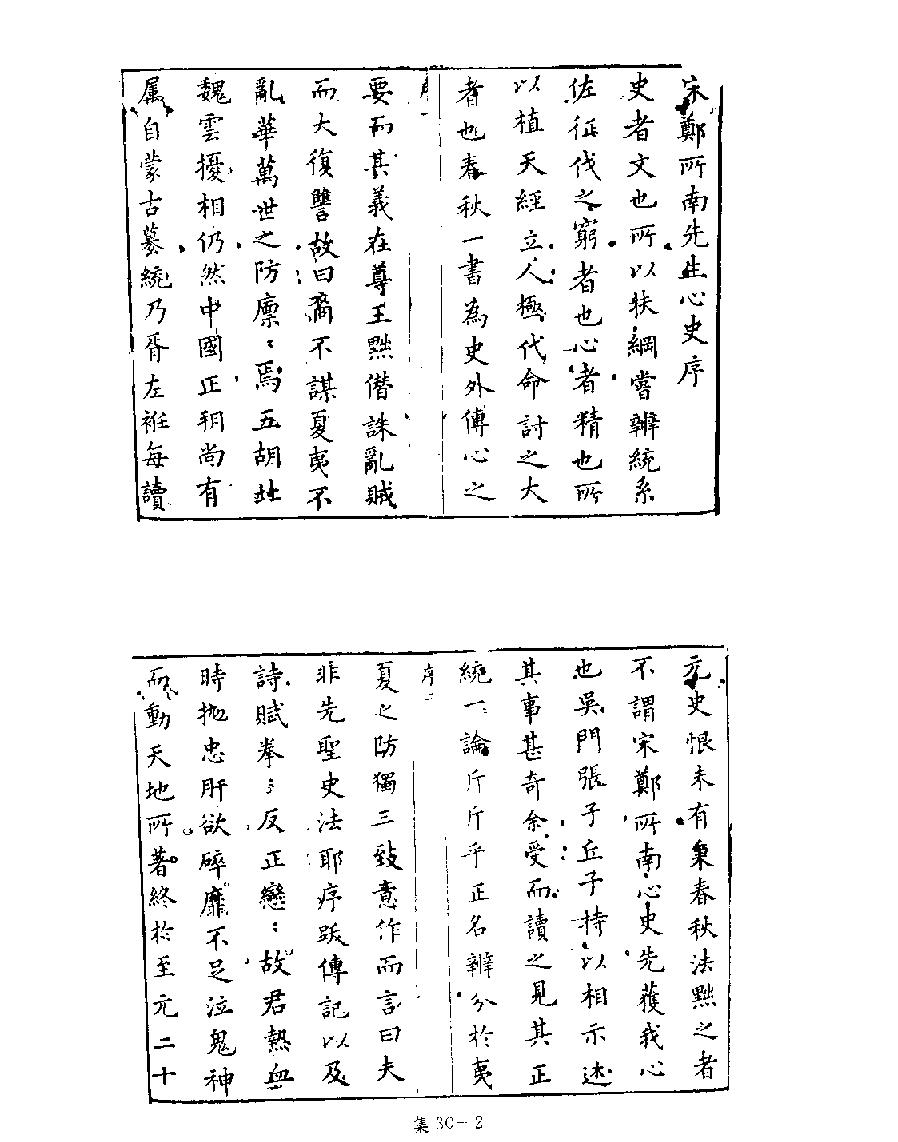 宋鄭所南先生心史序
史者文也所以扶綱嘗辨統系
佐征伐之窮者也心者精也所
以植天經立人極代命討之大
者也春秋一書為史外傳心之
序一
要而其義在尊王黜僭誅亂賊
而大復讐故曰裔不謀夏夷不
亂華萬世之防凜〻焉五胡北
魏雲擾相仍然中國正朔尚有
属自蒙古簒統乃胥左袵每讀
元史恨未有稟春秋法黜之者
不謂宋鄭所南心史先獲我心
也吳門張子丘子持以相示述
其事甚奇余受而讀之見其正
統一論斤斤乎正名辨分於夷
序二
夏之防獨三致意作而言曰夫
非先聖史法耶序跋傳記以及
詩賦拳〻反正戀〻故君熱血
時抛忠肝欲碎靡不足泣鬼神
而動天地所著終於至元二十
集30-2